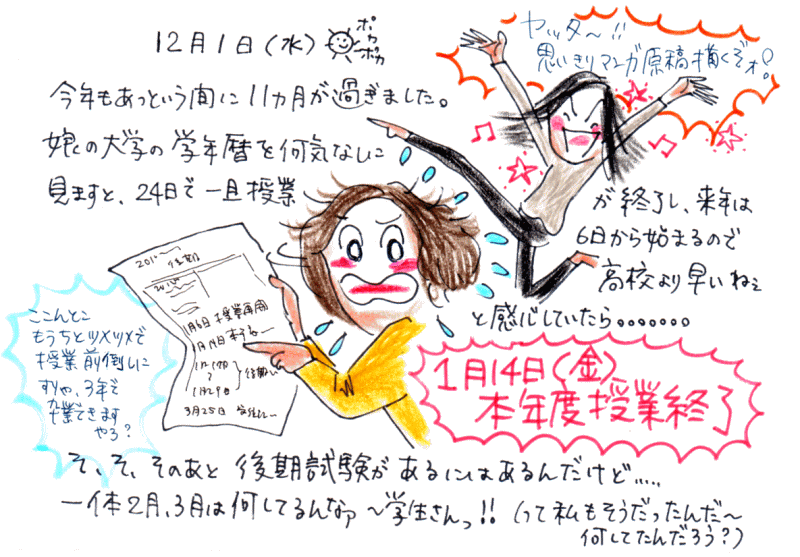 12月1日(水)
ポカ
ポカ
ヤッター!!
思いきりマンガ原稿描くぞォ!
今年もあっという間に11カ月が過ぎました。
娘の大学の学年暦を何気なしに
見ますと、24日で一旦授業
が終了し、来年は
6日から始まるので
高校より早いねぇ
と感心していたら。。。。。。。
201
後期
1月6日 授業再開
1月14日
1月17日
1月29日
3月25日
ここんとこ
もうちとツメツメで
授業前倒しに
すりゃ、3年で
卒業できますやろ?
1月14日(金)
本年度授業終了
そ、そ、そのあと 後期試験が あるにはあるんだけど.....
一体2月、3月は何してるんなァ〜学生さんっ!!(って私もそうだったんだ〜
何してたんだろう?)